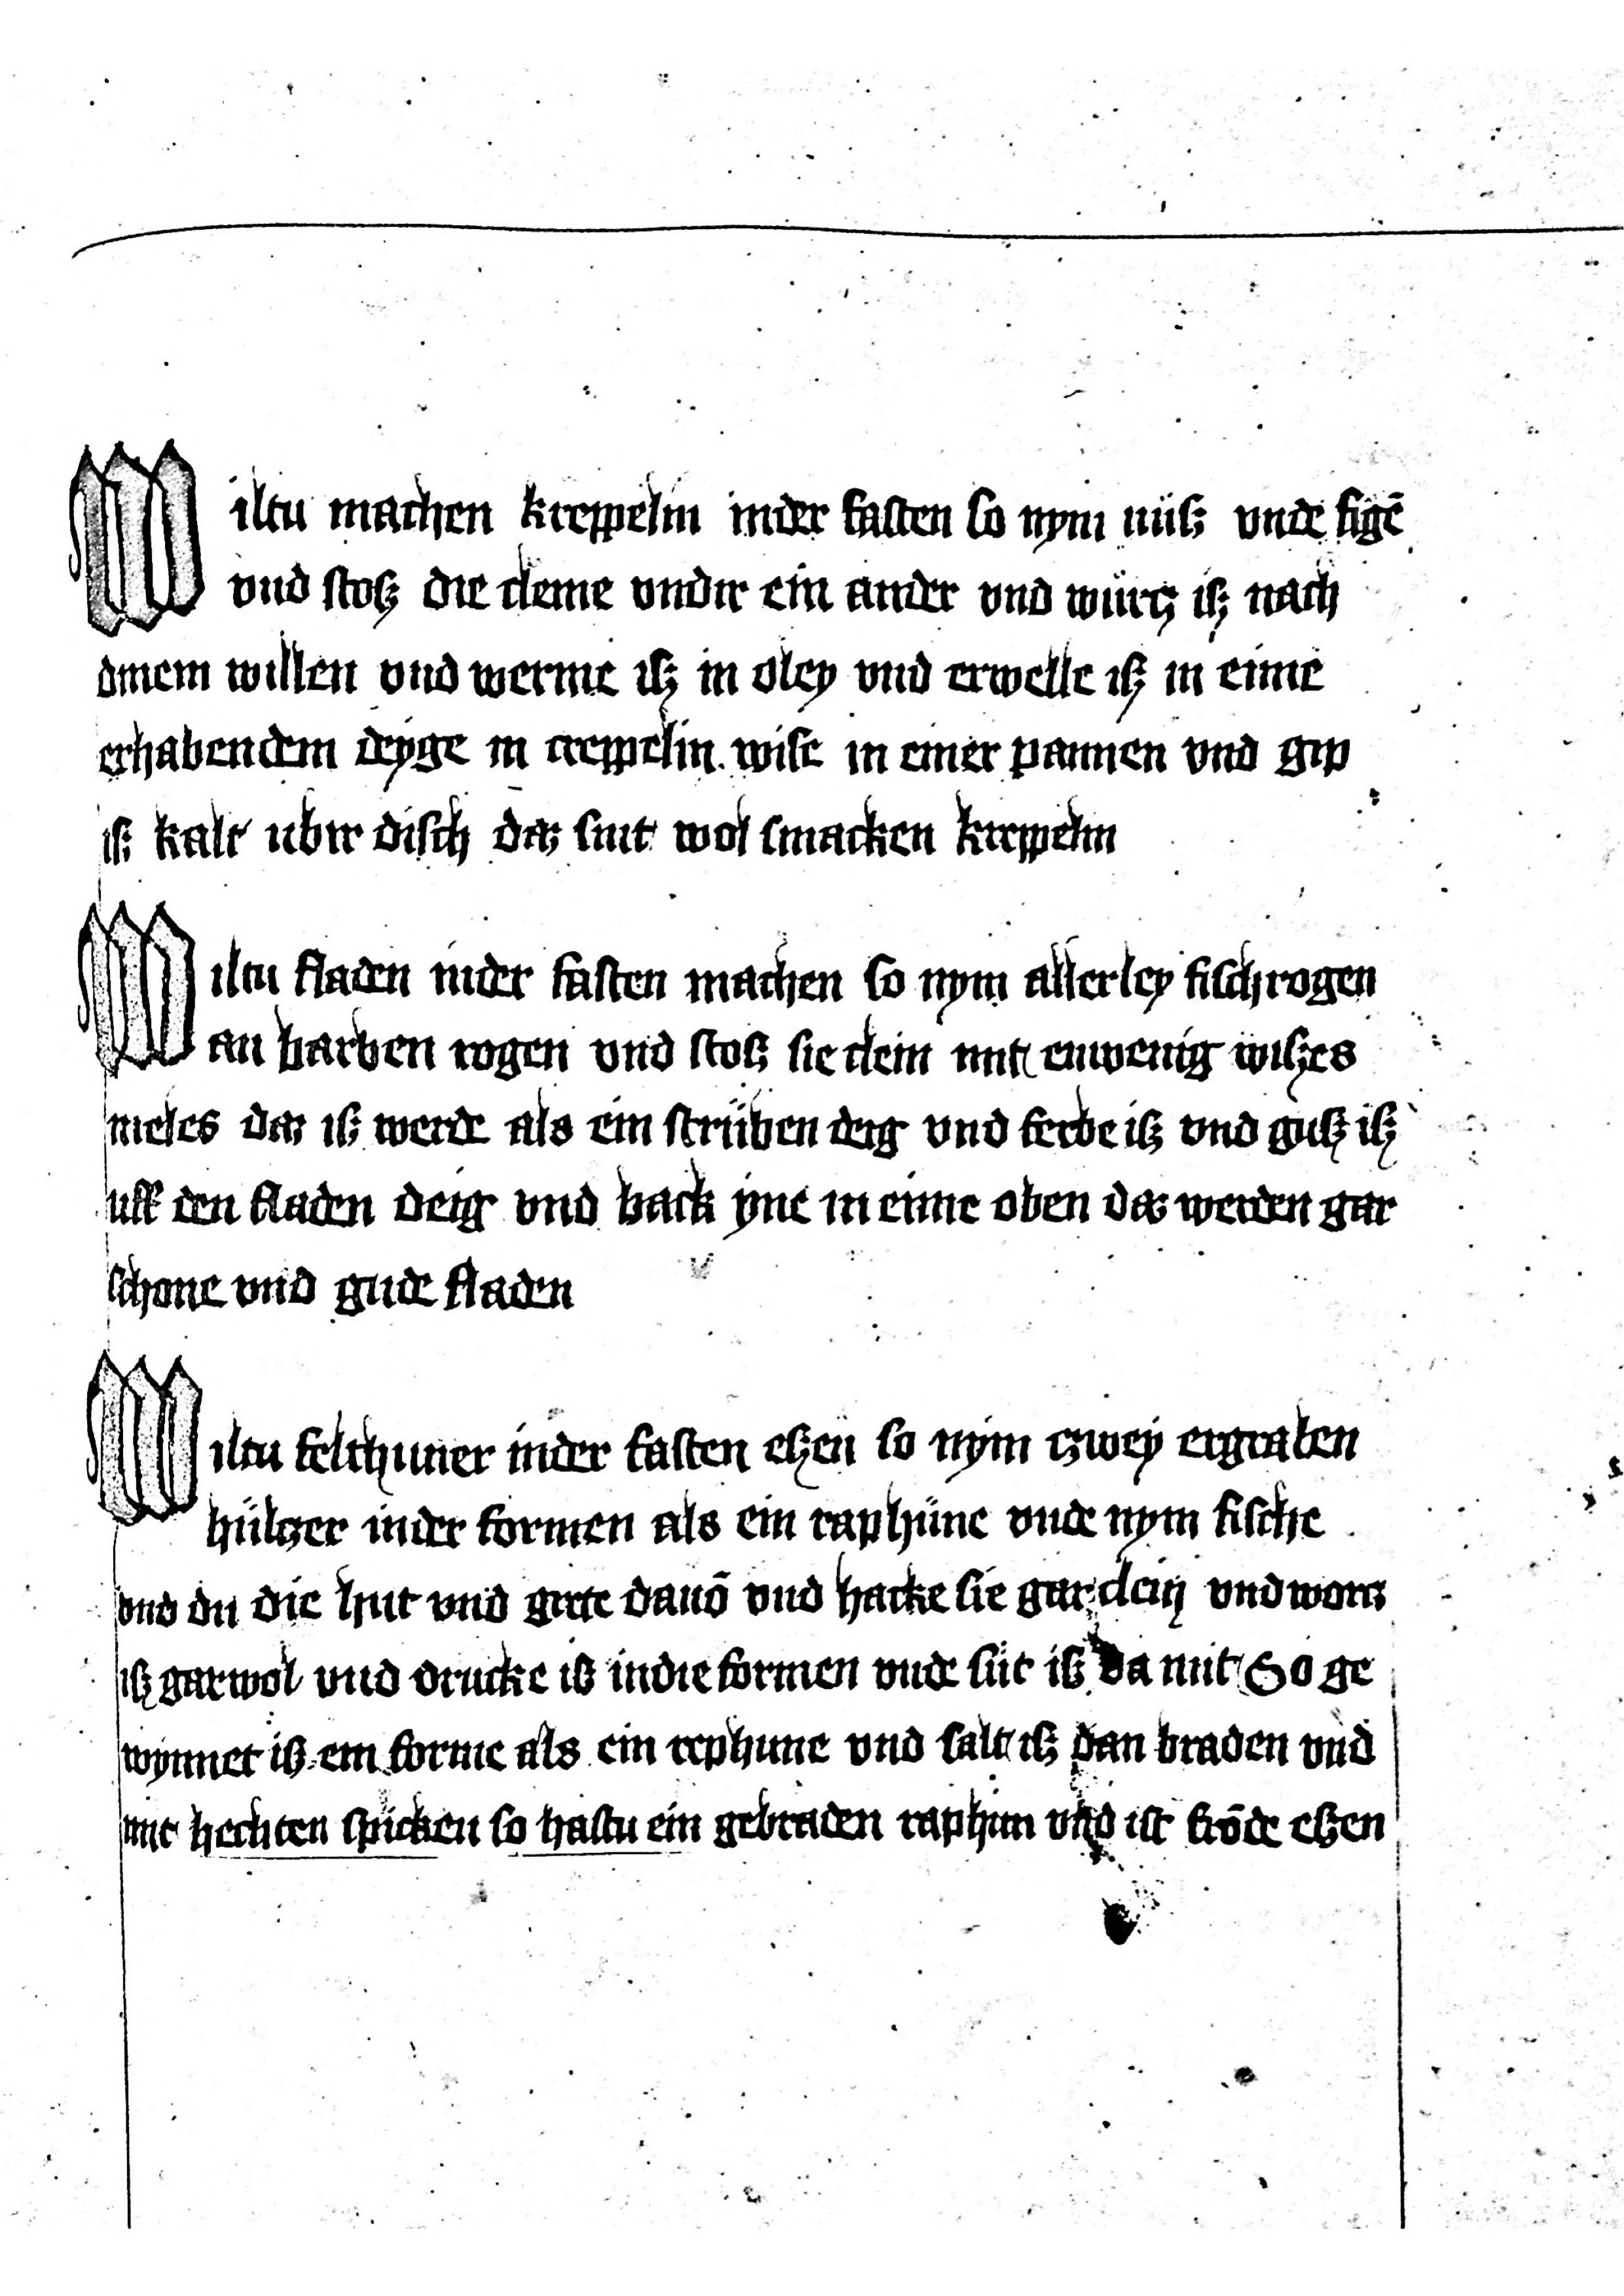 Wiltu machen kreppelin inder fasten so nym nüß vnde figē
vnd stoß die cleine vndir ein ander vnd würcz iß nach
dinem willen vnd werme iß in oley vnd erwelle iß in eime
erhabendem deyge in creppelin wise in einer pannen vnd gip
iß kalt ubir disch daz sint wol smacken kreppelin
Wiltu fladen inder fasten machen so nym allerley fischrogen
an barben rogen vnd stoß sie clein mit einwenig wißes
meles daz iß werde als ein strüben deig vnd ferbe iß vnd guß iß
uff den fladen deig vnd back yne in eime oben daz werden gar
schone vnd gude fladen
Wiltu felthuner inder fasten eßen so nym czwey ergraben
hülczer inder formen als ein raphüne vnde nym fische
vnd du die hut vnd grete dauō vnd hacke sie gar clein vnd worcz
iß gar wol vnd drucke iß indie formen vnde süt iß da mit So ge
wynnet iß ein forme als ein rephune vnd salt iß dan braden vnd
mit hechten spicken so hastu ein gebraden raphun vnd ist frōde eßen